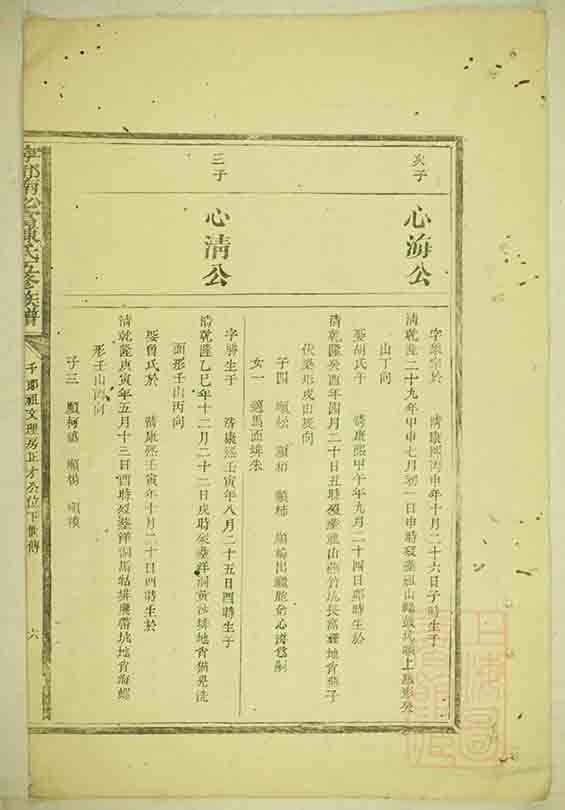 次子
心海公
字 宗於 清康熙丙申年十月二十六日子時生于
清乾隆二十九年甲申七月初一日申時歿葬祖山 上 形癸
山丁向
娶胡氏于 清康熙甲午年九月二十四日卯時生於
清乾隆癸酉年四月二十日丑時歿葬祖山 竹坑長富 地肖燕子
伏梁形戌山辰向
子四 顯松 顯柏 顯 顯 出繼胞弟心清為嗣
女一 適馬面排朱
三子
心清公
字 生于 清康熙壬寅年八月二十五日酉時生于
清乾隆乙巳年十二月二十二日戌時歿葬洋洞黃沙排地肖猫兒洗
面形壬山丙向
娶曾氏於 清康熙壬寅年十月二十日酉時生於
清乾隆庚寅年五月十三日酉時歿葬洋洞馬牯排 坑地肖海螺
形壬山丙向
子三 顯柯 顯 顯
陳氏五修族譜
子郎祖文理房正才公位下世傳
六
上海圖